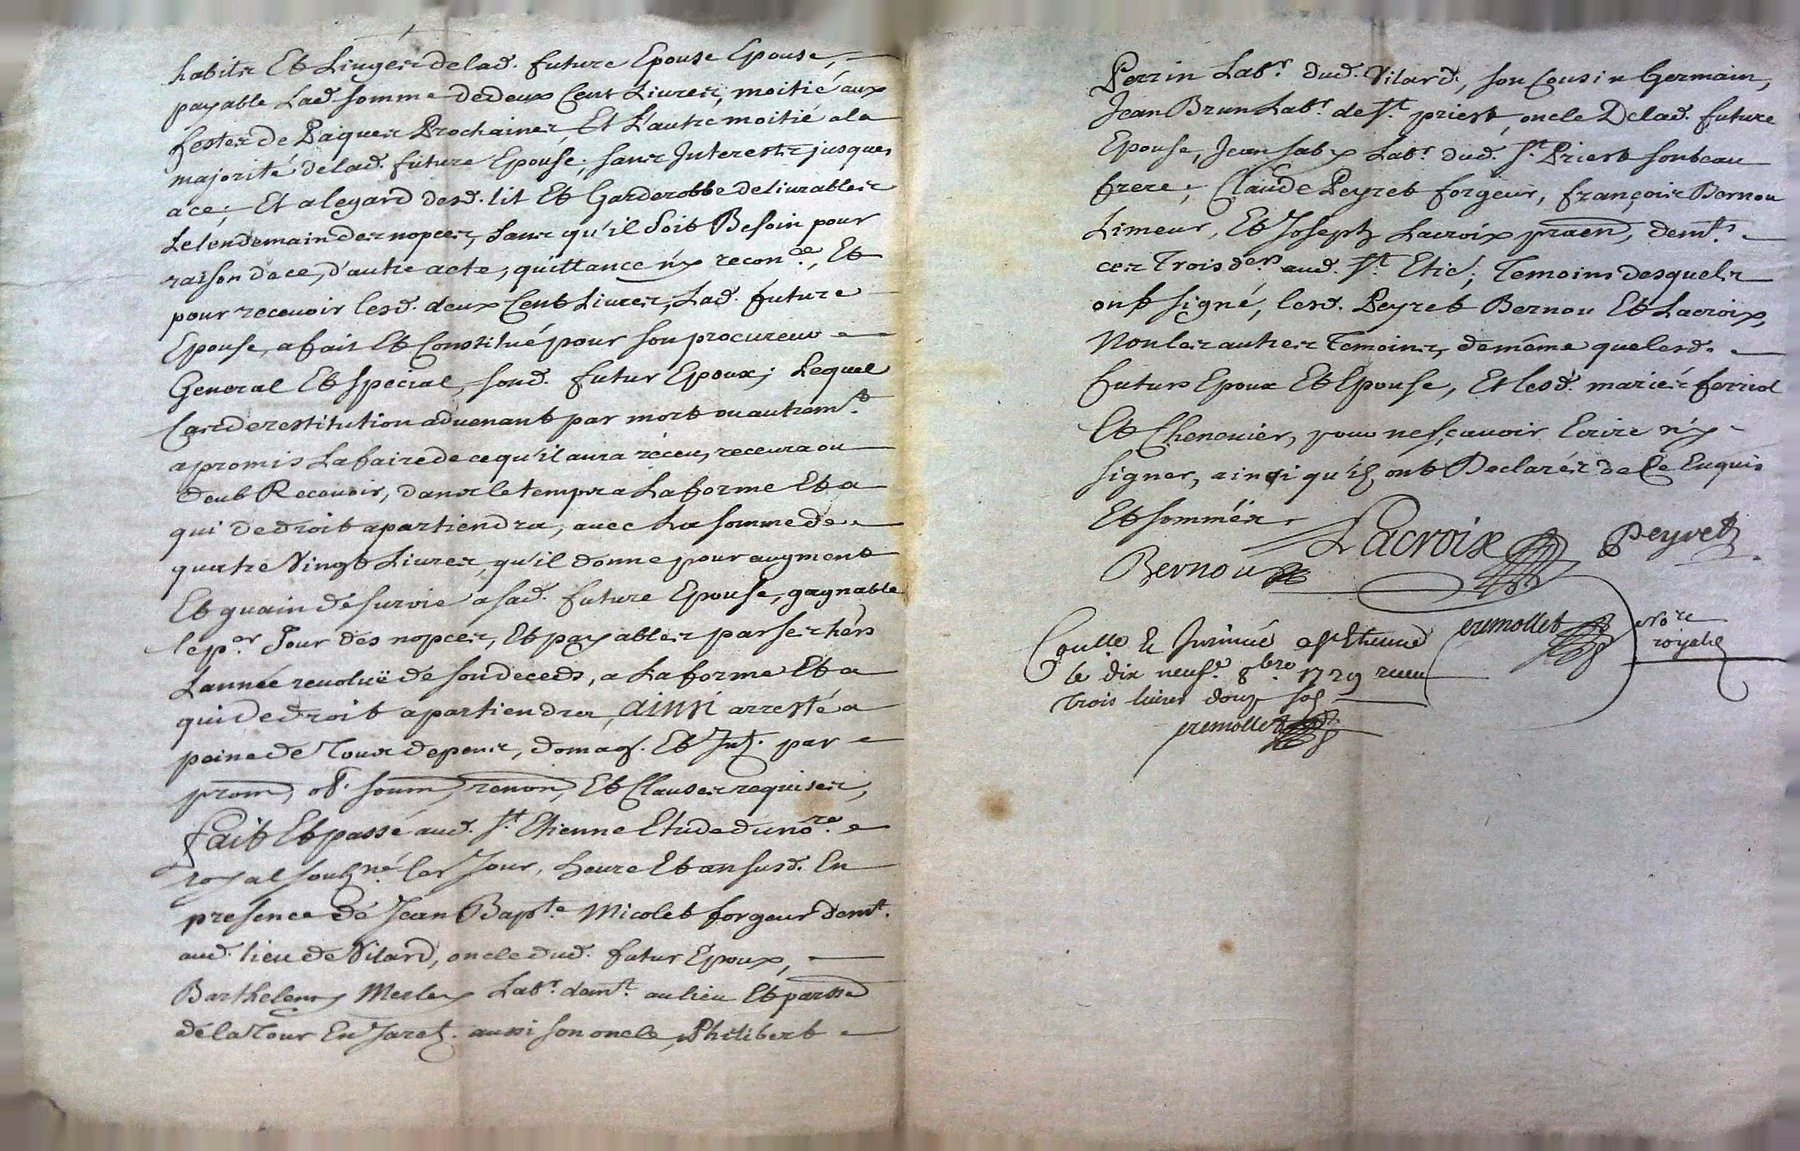 habits Et Linges de lad. future Epouse Epouse,
payable Lad. somme de deux Cent Livres, moitié aux
festes de Paques Prochaines Et L'autre moitié a la
majorité de lad. future Epouse, sans Interests jusques
a ce; Et a legard desd. lit Et Garderobbe delivrables
Le lendemain des nopces, sans qu'il soit Besoin pour
raison de ce, d'autre acte, quittance ny recon.ce, Et
pour recevoir lesd. deux Cent Livres, Lad. future
Epouse, a fait Et Constitué pour son procureur
General Et special, sond. futur Epoux; Lequel
Cas de restitution advenant par mort ou autrem.t
a promis La faire de ce qu'il aura réceu, recevra ou
deub Recevoir, dans le temps a La forme Et a
qui de droit apartiendra, avec La somme de
quatre Vingt Livres, qu'il donne pour augment
Et guain de survie a sad. future Epouse, gagnable
le p.er Jour des nopces, Et payables par ses hers
L'année revoluë dé son deceds, a La forme Et a
qui de droit apartiendra, ainsi arresté a
peine de Tous depens, domag. Et Jnt. par
prom, ob. soum, renon, Et Clauses requises,
Fait Et passé aud. St. Etienne Etude du no.re
royal soubz.né les Jour, heure Et an susd. En
presence dé Jean Bapt.e Micolet forgeur dem.t
aud. lieu de Vilard, oncle dud. futur Epoux,
Barthelemy Merley Lab.r dem.t au lieu Et parsse
dé la Tour En Jaret. aussi son oncle, Philibert
Perrin Lab.r dud. Vilard, son Cousin Germain,
Jean Brun Lab.r de St. priest, oncle De lad. future
Epouse, Jean Laby Lab.r dud. St. Priest son beau
frere, Claude Peyret forgeur, françois Bernou
Limeur, Et Joseph Lacroix praen, dem.ts
ces Trois d.ers aud. St. Etie; Temoins desquels
ont signé, lesd. Peyret Bernou Et Lacroix,
Non les autres Temoins, de même que lesd.
futurs Epoux Et Epouse, Et lesd. mariés ferriol
Et Chenevier, pour ne sçavoir Ecrire ny
signer, ainsi qu'ils ont Declarés de Ce Enquis
Et sommés.
Lacroix Peyret
Bernou
cremollet no.re
royal
Conllé & Insinué a St Etienne
le dix neuf.e 8bre 1729 receu
trois livres douze sols
cremollet